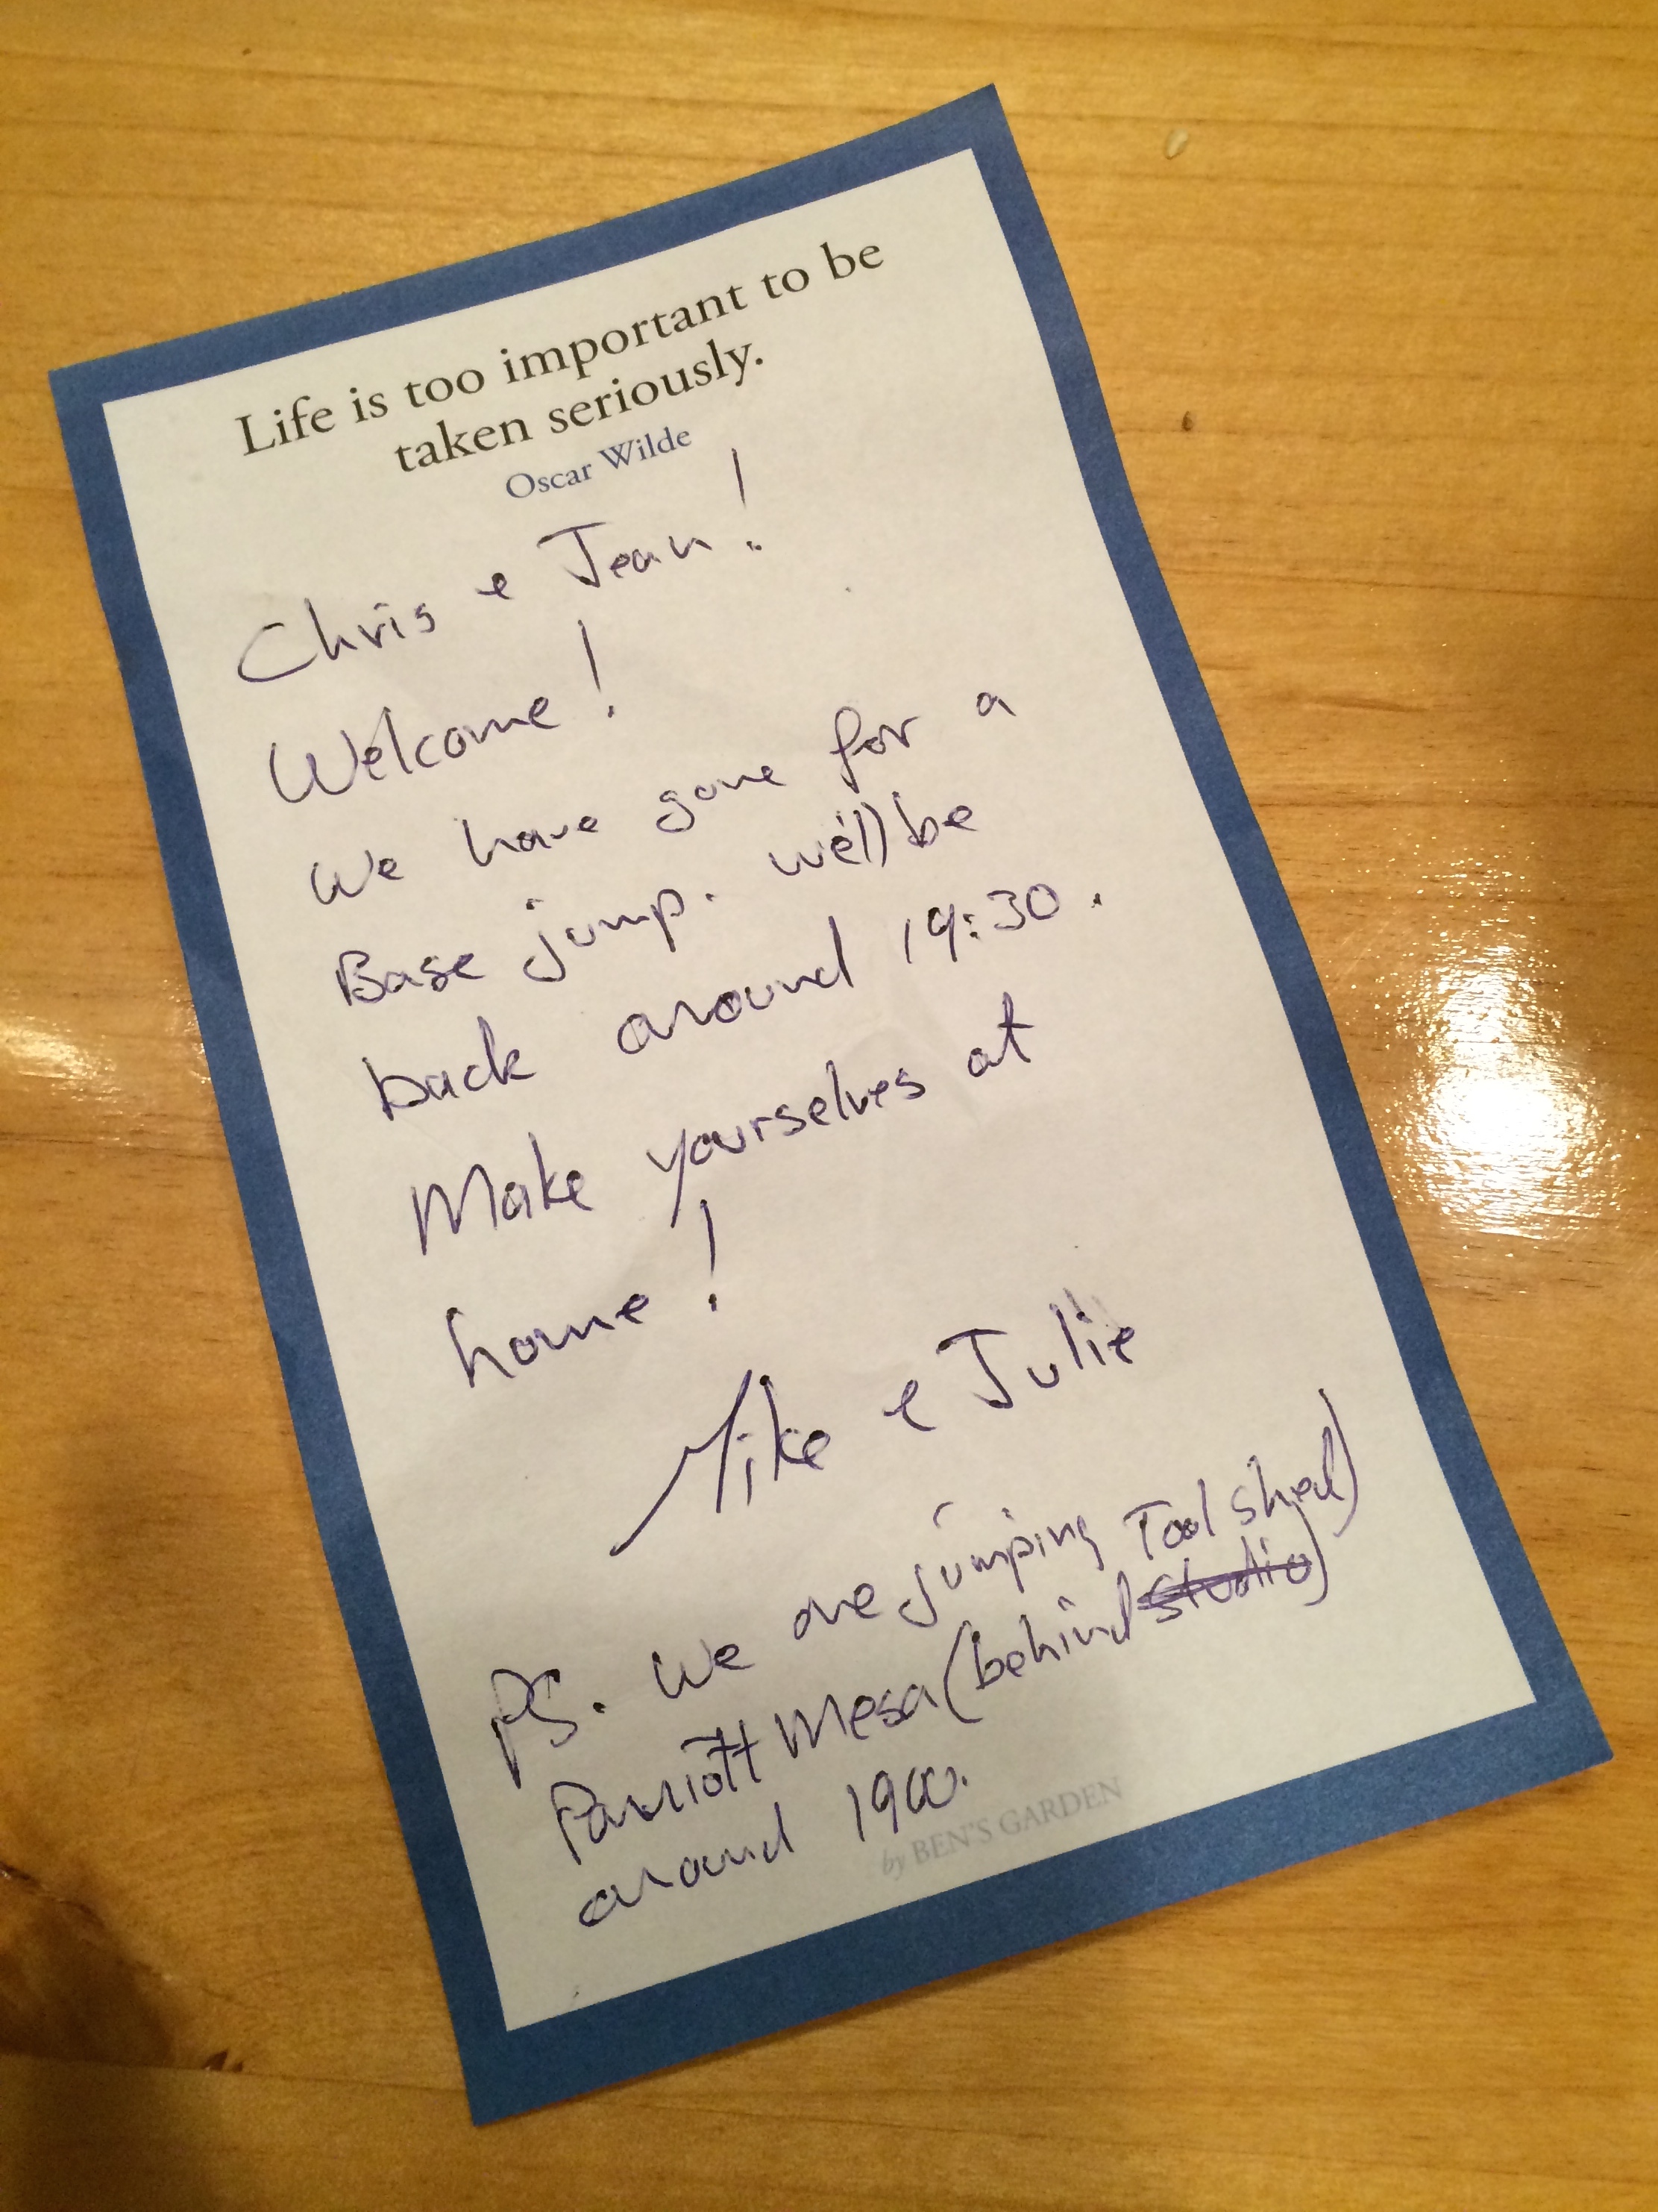 Life is too important to be
taken seriously.
Oscar Wilde
Chris & Jean!
Welcome!
We have gone for a
Base jump. we'll be
back around 19:30.
Make yourselves at
home!
Mike & Julie
PS. We are jumping Tool shed)
Parriott Mesa (behind studio)
around 1900.
by BEN'S GARDEN